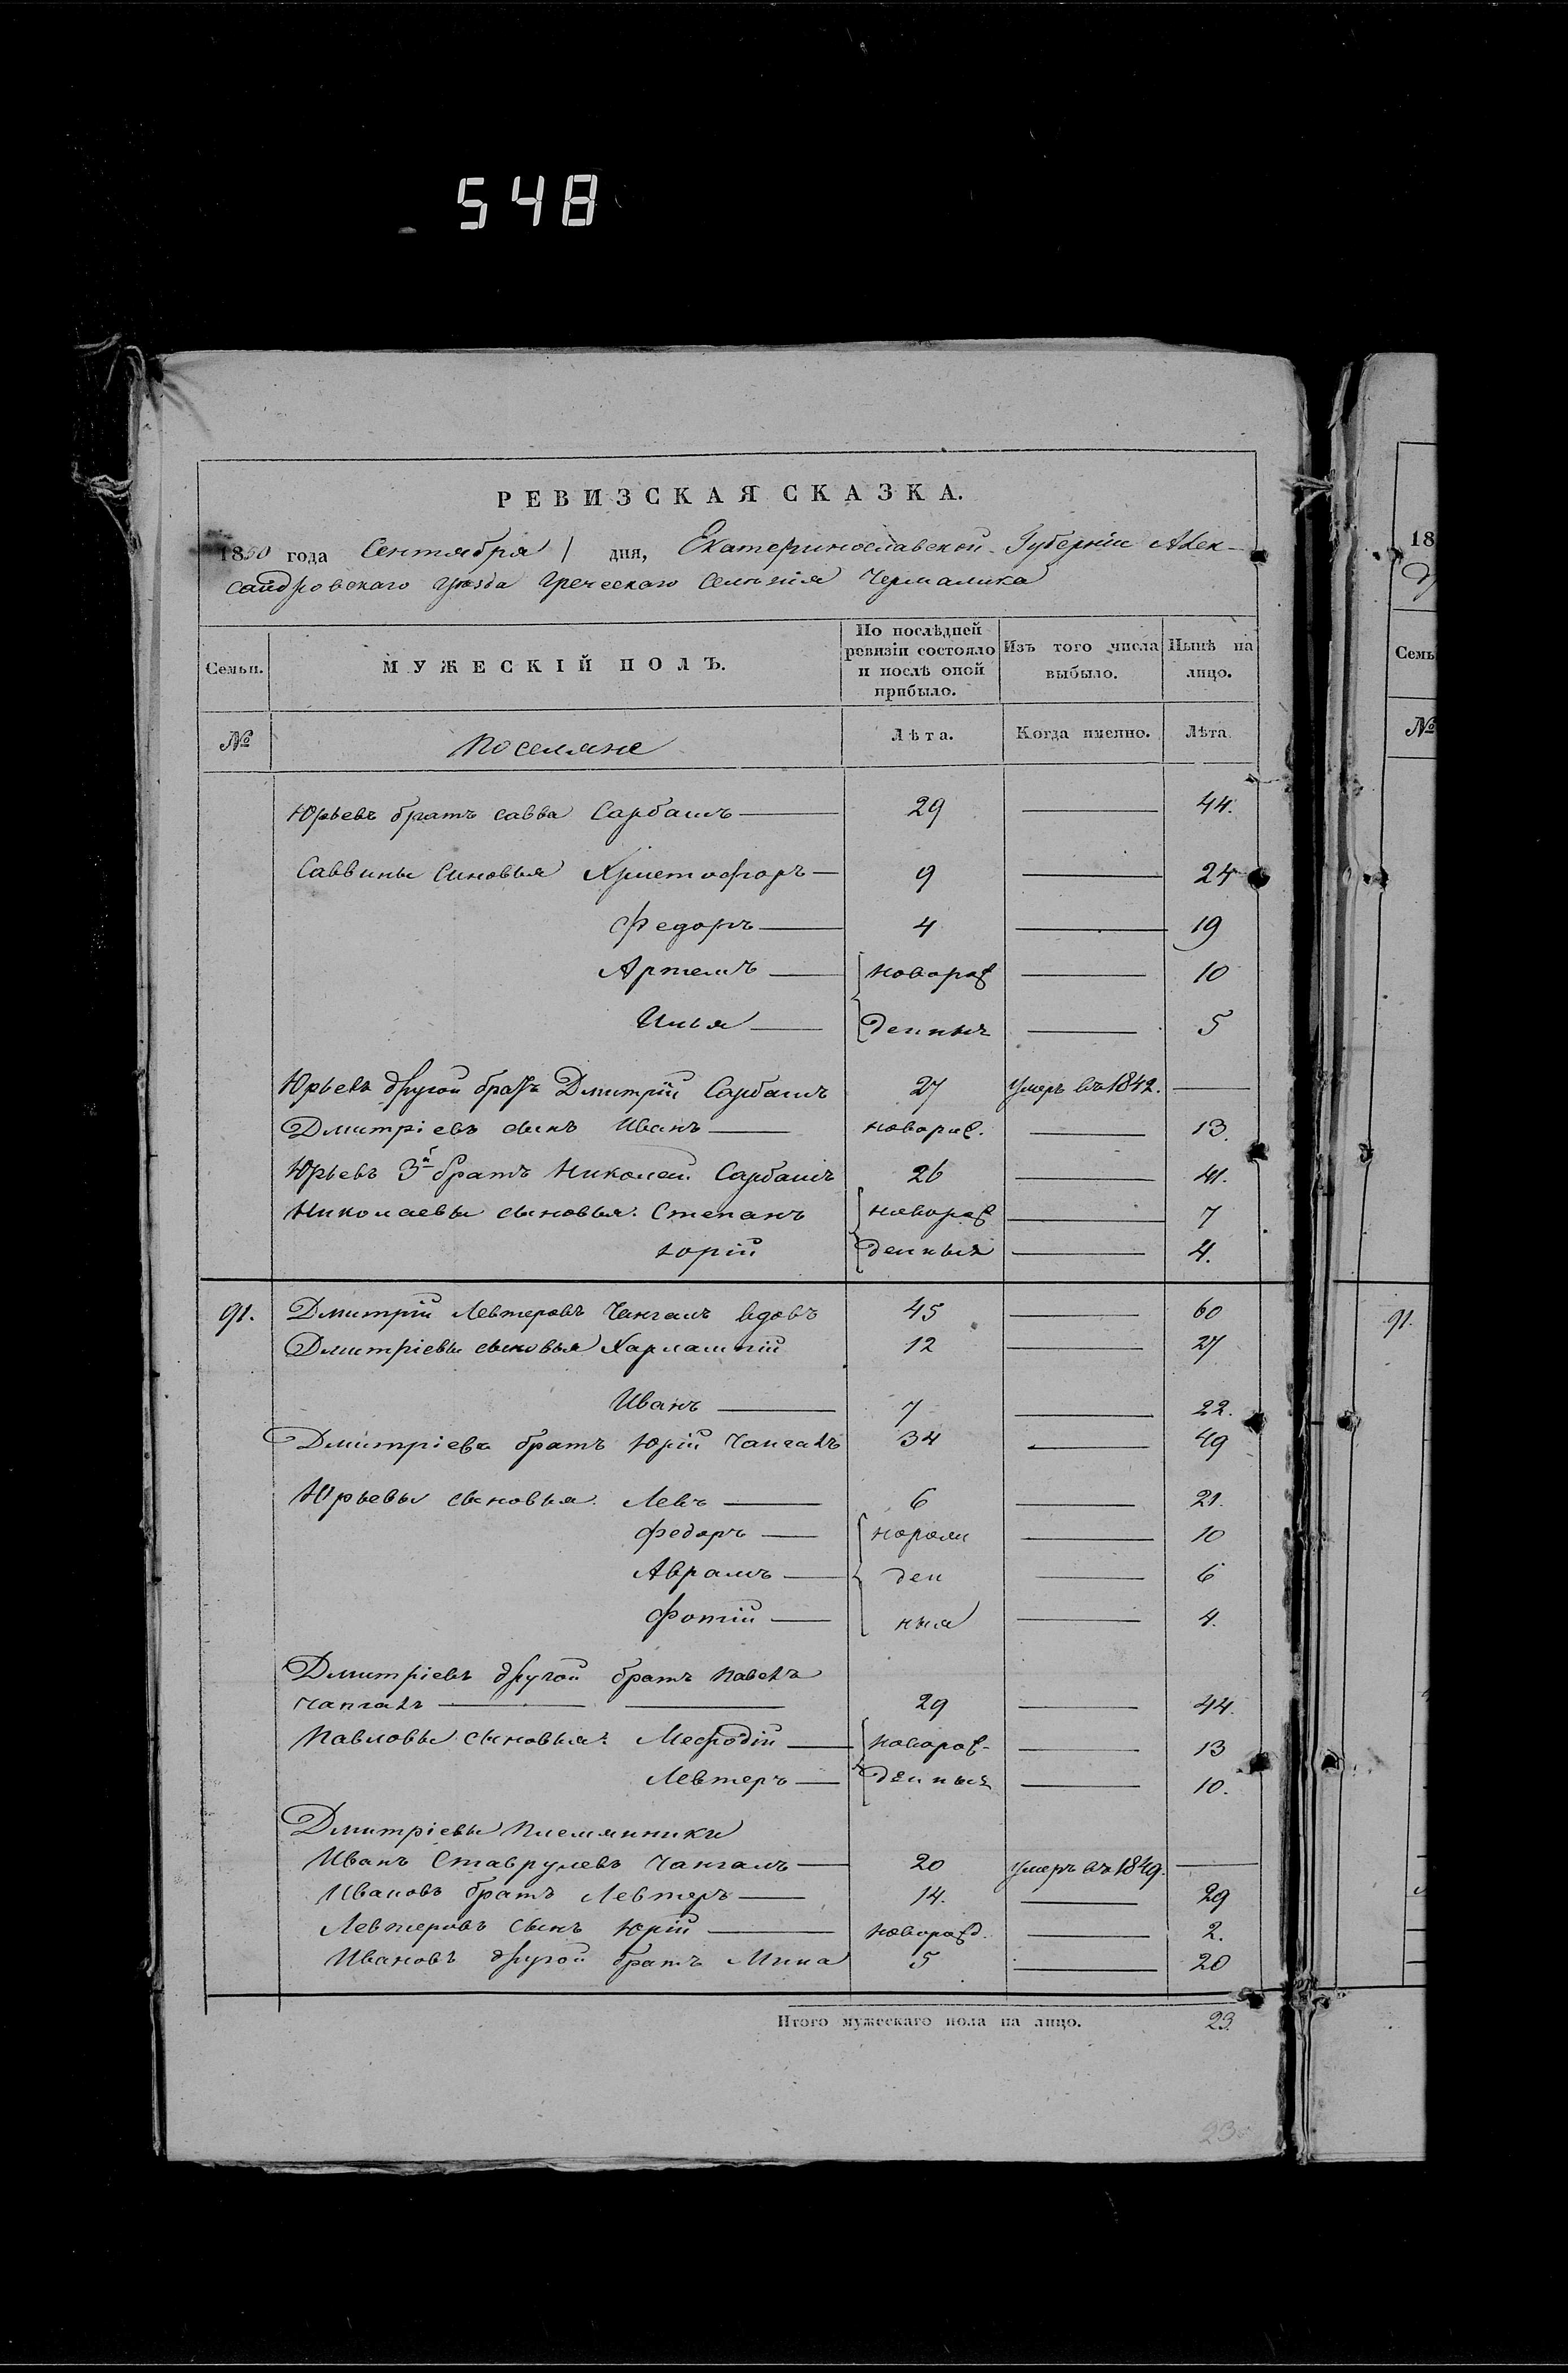 548
РЕВИЗСКАЯ СКАЗКА.
1850 года Сентября 1 дня, Екатеринославской Губерніи Алек-
сандровскаго уѣзда Греческаго Селенія Чермалика
Семьи. МУЖЕСКІЙ ПОЛЪ. По послѣдней ревизіи состояло и послѣ оной прибыло. Изъ того числа выбыло. Нынѣ на лицо.
№ Поселяне Лѣта. Когда именно. Лѣта.
Юрьевъ братъ Савва Сарбашъ 29 44.
Саввины Сыновья Христофоръ 9 24
Федоръ 4 19
Артемъ новорож 10
Илья денныхъ 5
Юрьевъ другой братъ Дмитрій Сарбашъ 27 умеръ въ 1842.
Дмитріевъ сынъ Иванъ новорож. 13.
Юрьевъ 3й братъ Николай Сарбашъ 26 41.
Николаевы сыновья: Степанъ новорож 7
Юрій денныя 4.
91. Дмитрій Левтеровъ Чангалъ вдовъ 45 60
Дмитріевы сыновья Харлампій 12 27
Иванъ 7 22.
Дмитріевъ братъ Юрій Чангалъ 34 49
Юрьевы сыновья. Левъ 6 21.
Федоръ 10
Аврамъ ден 6
Фотій ныя 4.
Дмитріевъ другой братъ Павелъ
Чангалъ 29 44.
Павловы сыновья: Мефодій новорож- 13
Левтеръ денныя 10.
Дмитріевы племянники
Иванъ Ставрулевъ Чангалъ 20 умеръ въ 1849.
Ивановъ братъ Левтеръ 14. 29
Левтеровъ сынъ Юрій новорожд. 2.
Ивановъ другой братъ Мина 5 20
Итого мужескаго пола на лицо. 23.
18
Семь
№
91.